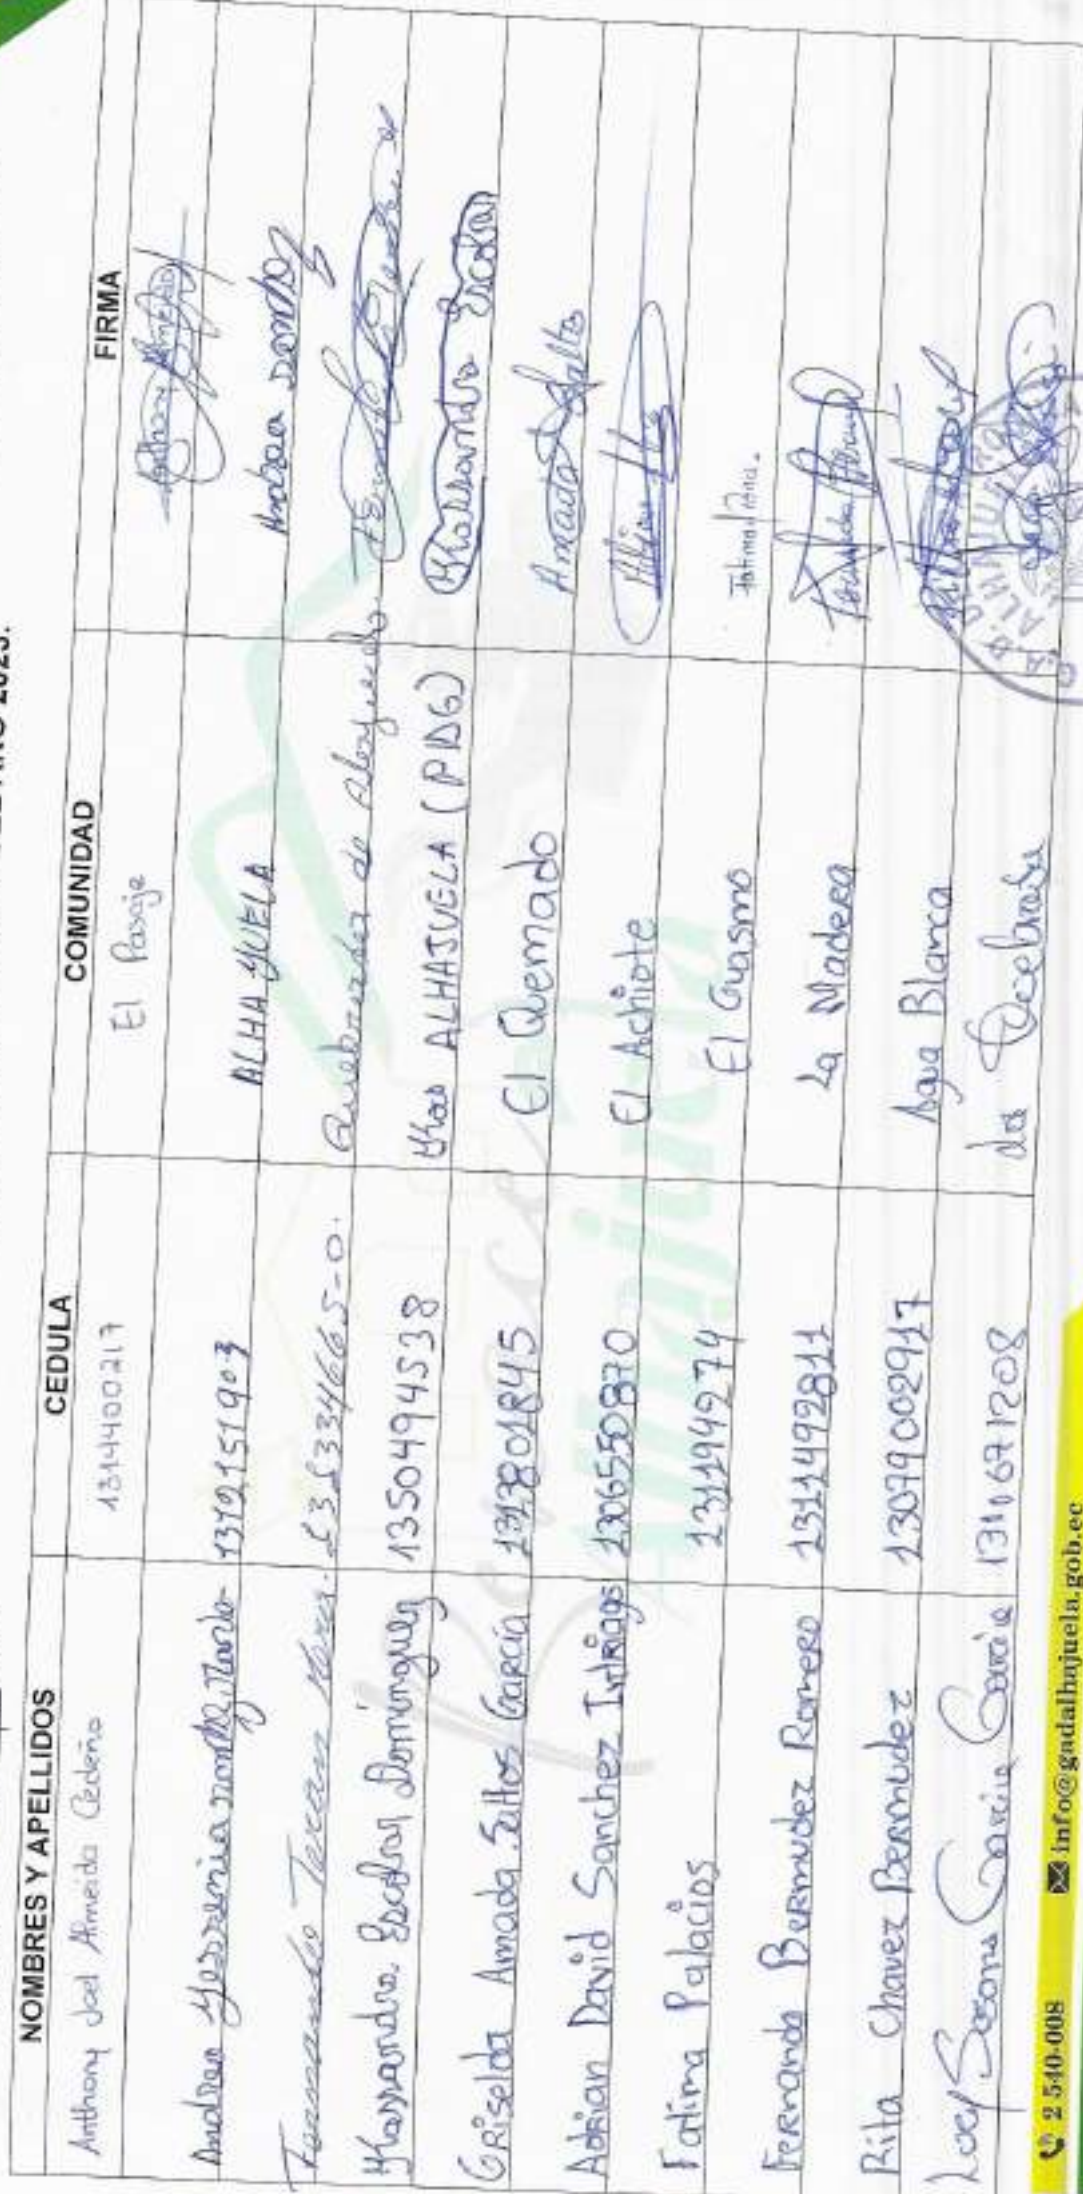 AÑO 2023.
NOMBRES Y APELLIDOS CEDULA COMUNIDAD FIRMA
Anthony Joel Almeida Cedeño 1314400217 El Pasaje Anthony Almeida
Andrea Yessenia 1312151903 ALHAJUELA Andrea
Fernando 135334665-0. Quebrada de
Khassandra Escobar Dominguez 1350494538 ALHAJUELA (PDG) Khassandra Escobar
GRiselda Amada Saltos García 1313801845 El Quemado Amada Saltos
Adrian David Sanchez Intriago 1306550870 El Achiote
Fatima Palacios 131194974 El Guasmo
Fernanda BERMUdez Romero 1311492811 La Madera
Rita Chavez BERMUdez 13079002917 Agua Blanca
García García 1310671208 Quebrada
2 540-008 info@gadalhajuela.gob.ec
Alhajuela